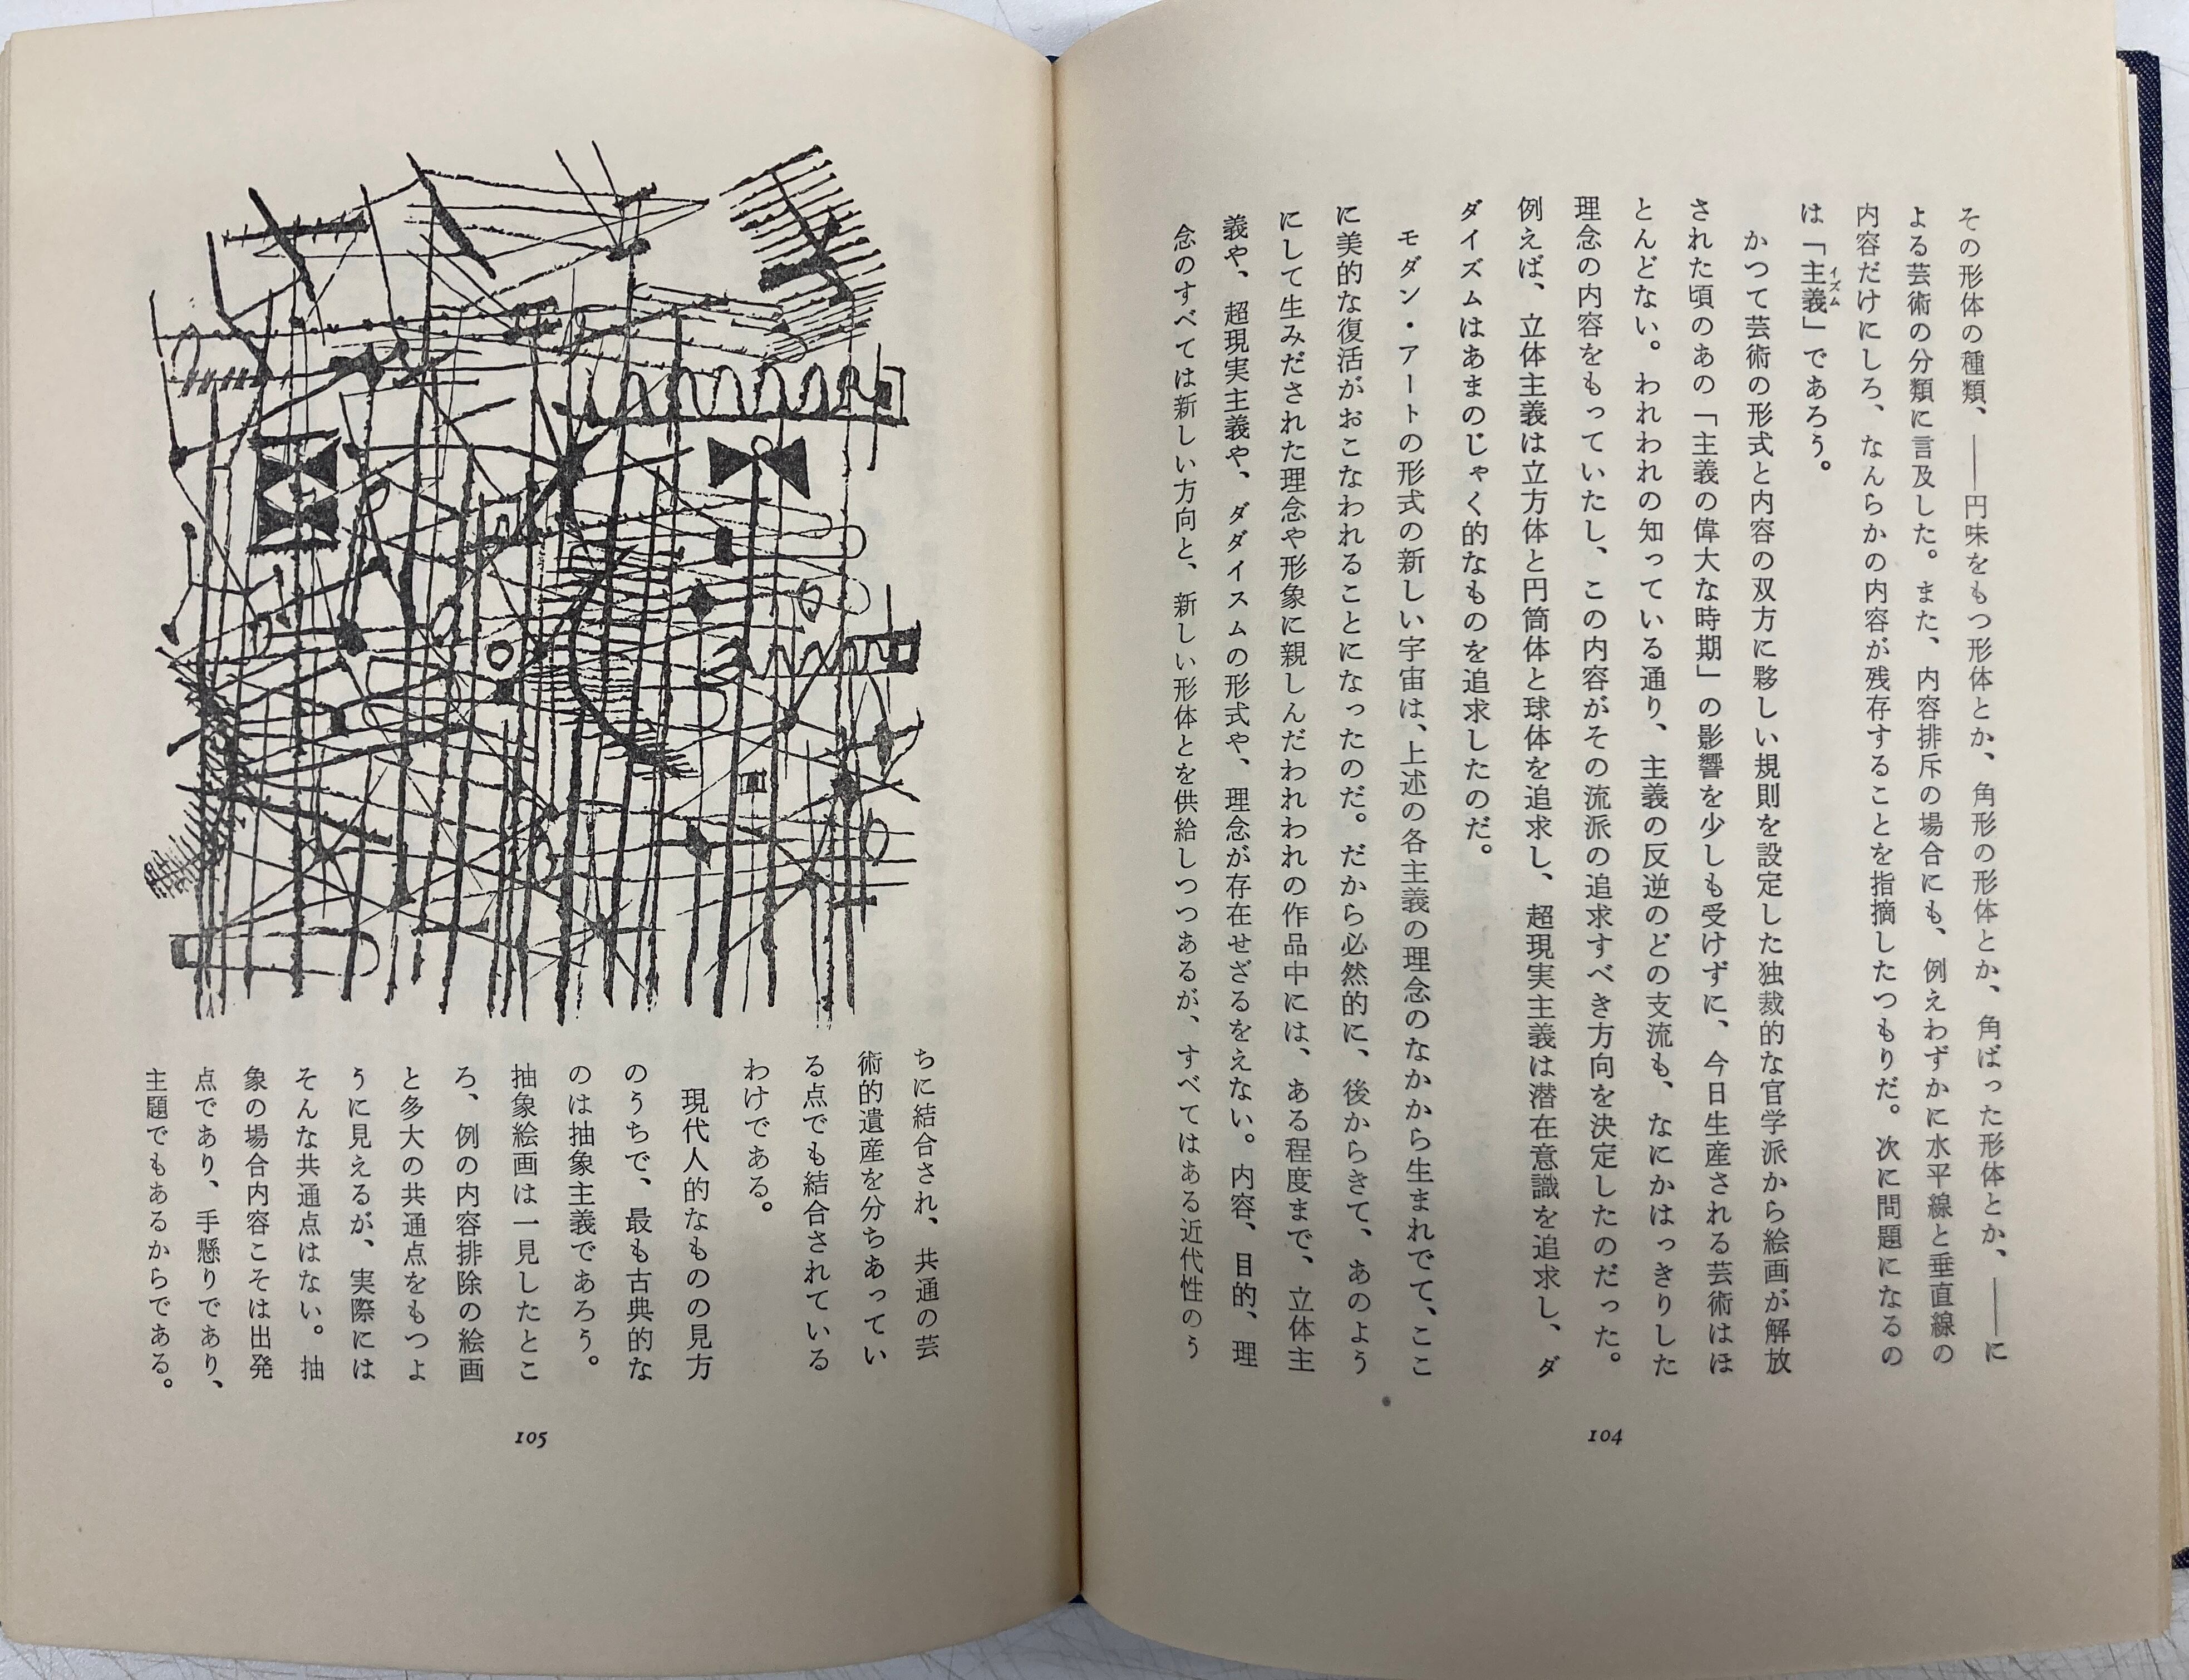 その形体の種類、――円味をもつ形体とか、角形の形体とか、角ばった形体とか、――に
よる芸術の分類に言及した。また、内容排斥の場合にも、例えわずかに水平線と垂直線の
内容だけにしろ、なんらかの内容が残存することを指摘したつもりだ。次に問題になるの
は「主義」であろう。
イズム
かつて芸術の形式と内容の双方に夥しい規則を設定した独裁的な官学派から絵画が解放
された頃のあの「主義の偉大な時期」の影響を少しも受けずに、今日生産される芸術はほ
とんどない。われわれの知っている通り、主義の反逆のどの支流も、なにかはっきりした
理念の内容をもっていたし、この内容がその流派の追求すべき方向を決定したのだった。
例えば、立体主義は立方体と円筒体と球体を追求し、超現実主義は潜在意識を追求し、ダ
ダイズムはあまのじゃく的なものを追求したのだ。
モダン・アートの形式の新しい宇宙は、上述の各主義の理念のなかから生まれでて、ここ
に美的な復活がおこなわれることになったのだ。だから必然的に、後からきて、あのよう
にして生みだされた理念や形象に親しんだわれわれの作品中には、ある程度まで、立体主
義や、超現実主義や、ダダイスムの形式や、理念が存在せざるをえない。内容、目的、理
念のすべては新しい方向と、新しい形体とを供給しつつあるが、すべてはある近代性のう
104
ちに結合され、共通の芸
術的遺産を分ちあってい
る点でも結合されている
わけである。
現代人的なものの見方
のうちで、最も古典的な
のは抽象主義であろう。
抽象絵画は一見したとこ
ろ、例の内容排除の絵画
と多大の共通点をもつよ
うに見えるが、実際には
そんな共通点はない。抽
象の場合内容こそは出発
点であり、手懸りであり、
主題でもあるからである。
105